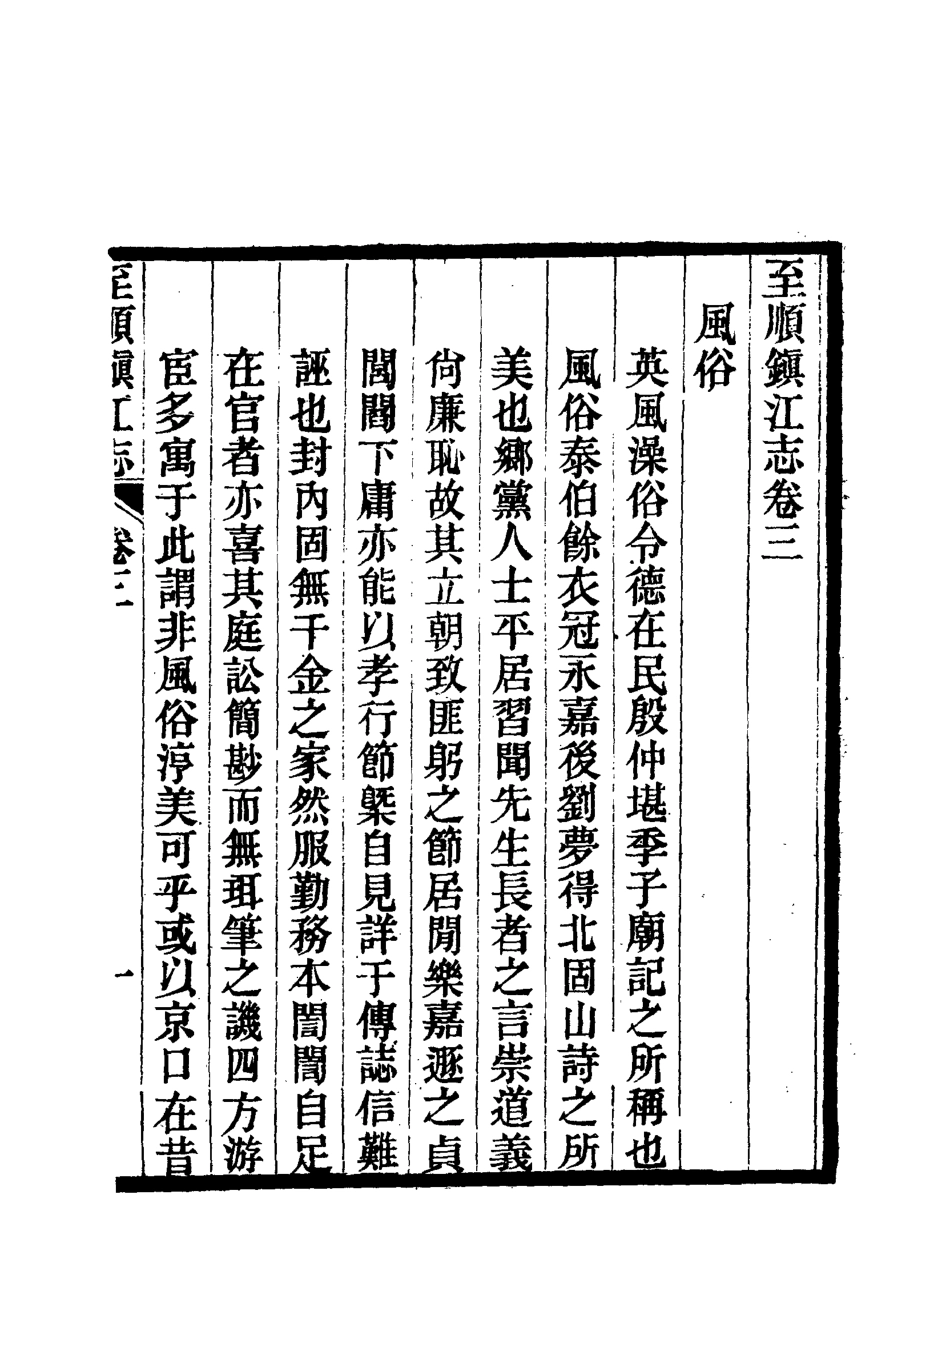 至順鎮江志卷三
風俗
英風澡俗令德在民殷仲堪季子廟記之所稱也
風俗泰伯餘衣冠永嘉後劉夢得北固山詩之所
美也鄉黨人士平居習聞先生長者之言崇道義
尙廉恥故其立朝致匪躬之節居閒樂嘉遯之貞
閭閻下庸亦能以孝行節槩自見詳于傳誌信難
誣也封內固無千金之家然服勤務本誾誾自足
在官者亦喜其庭訟簡尠而無珥筆之譏四方游
宦多寓于此謂非風俗淳美可乎或以京口在昔
至順鎮江志 卷三 一